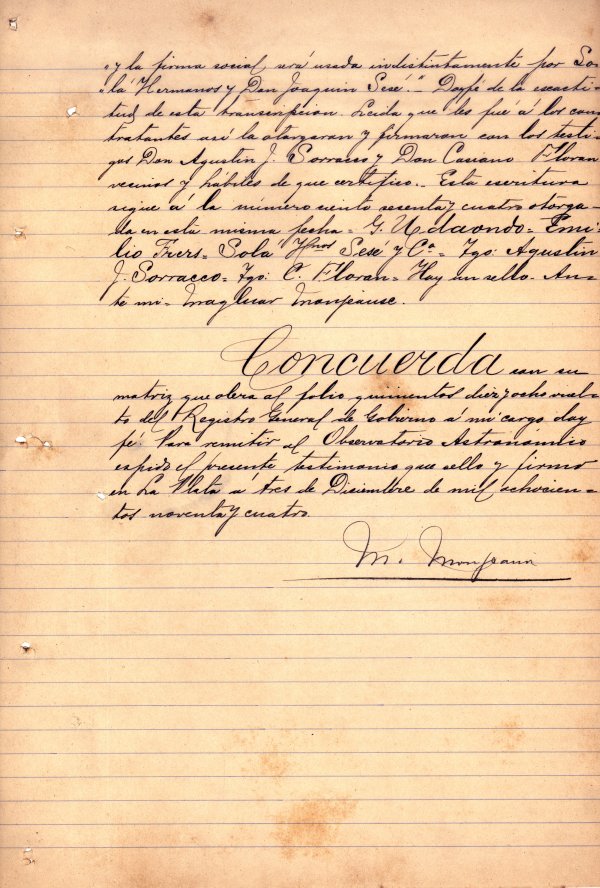 "y la firma social, será usada indistintamente por So-
"lá Hermanos y Don Joaquin Sesé." Doy fé de la esacti-
tud de esta transcripcion. Leida que les fué á los con-
tratantes así la otorgaron y firmaron con los testi-
gos Don Agustin J. Sorracco y Don Casiano Floran
vecinos y hábiles de que certifico.. Esta escritura
sigue á la número ciento sesenta y cuatro otorga-
da en esta misma fecha = G. Udaondo = Emi-
lio Frers = Solá Hnos Sesé y Ca = Tgo: Agustin
J. Sorracco = Tgo: C. Floran = Hay un sello. An-
te mi =
Concuerda con su
matriz que obra al folio quinientos diez y ocho vuel-
to del Registro General de Gobierno á mi cargo, doy
fé. Para remitir al Observatorio Astronómico
espido el presente testimonio que sello y firmo
en La Plata a tres de Diciembre de mil ochocien-
tos noventa y cuatro.
M.